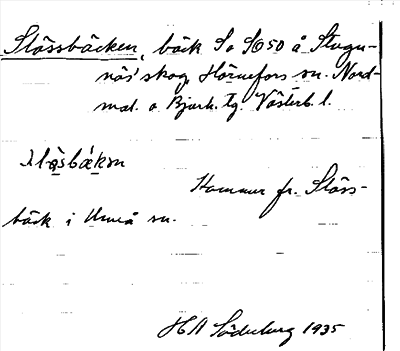 Stössbäcken, bäck S. o SO 50 å Stugu-
näs' skog, Hörnefors sn. Nord-
mal. o Bjurh. tg. Västerb. l.
Kommer fr. Stöss-
bäck i Umeå sn.
HA Söderberg 1935